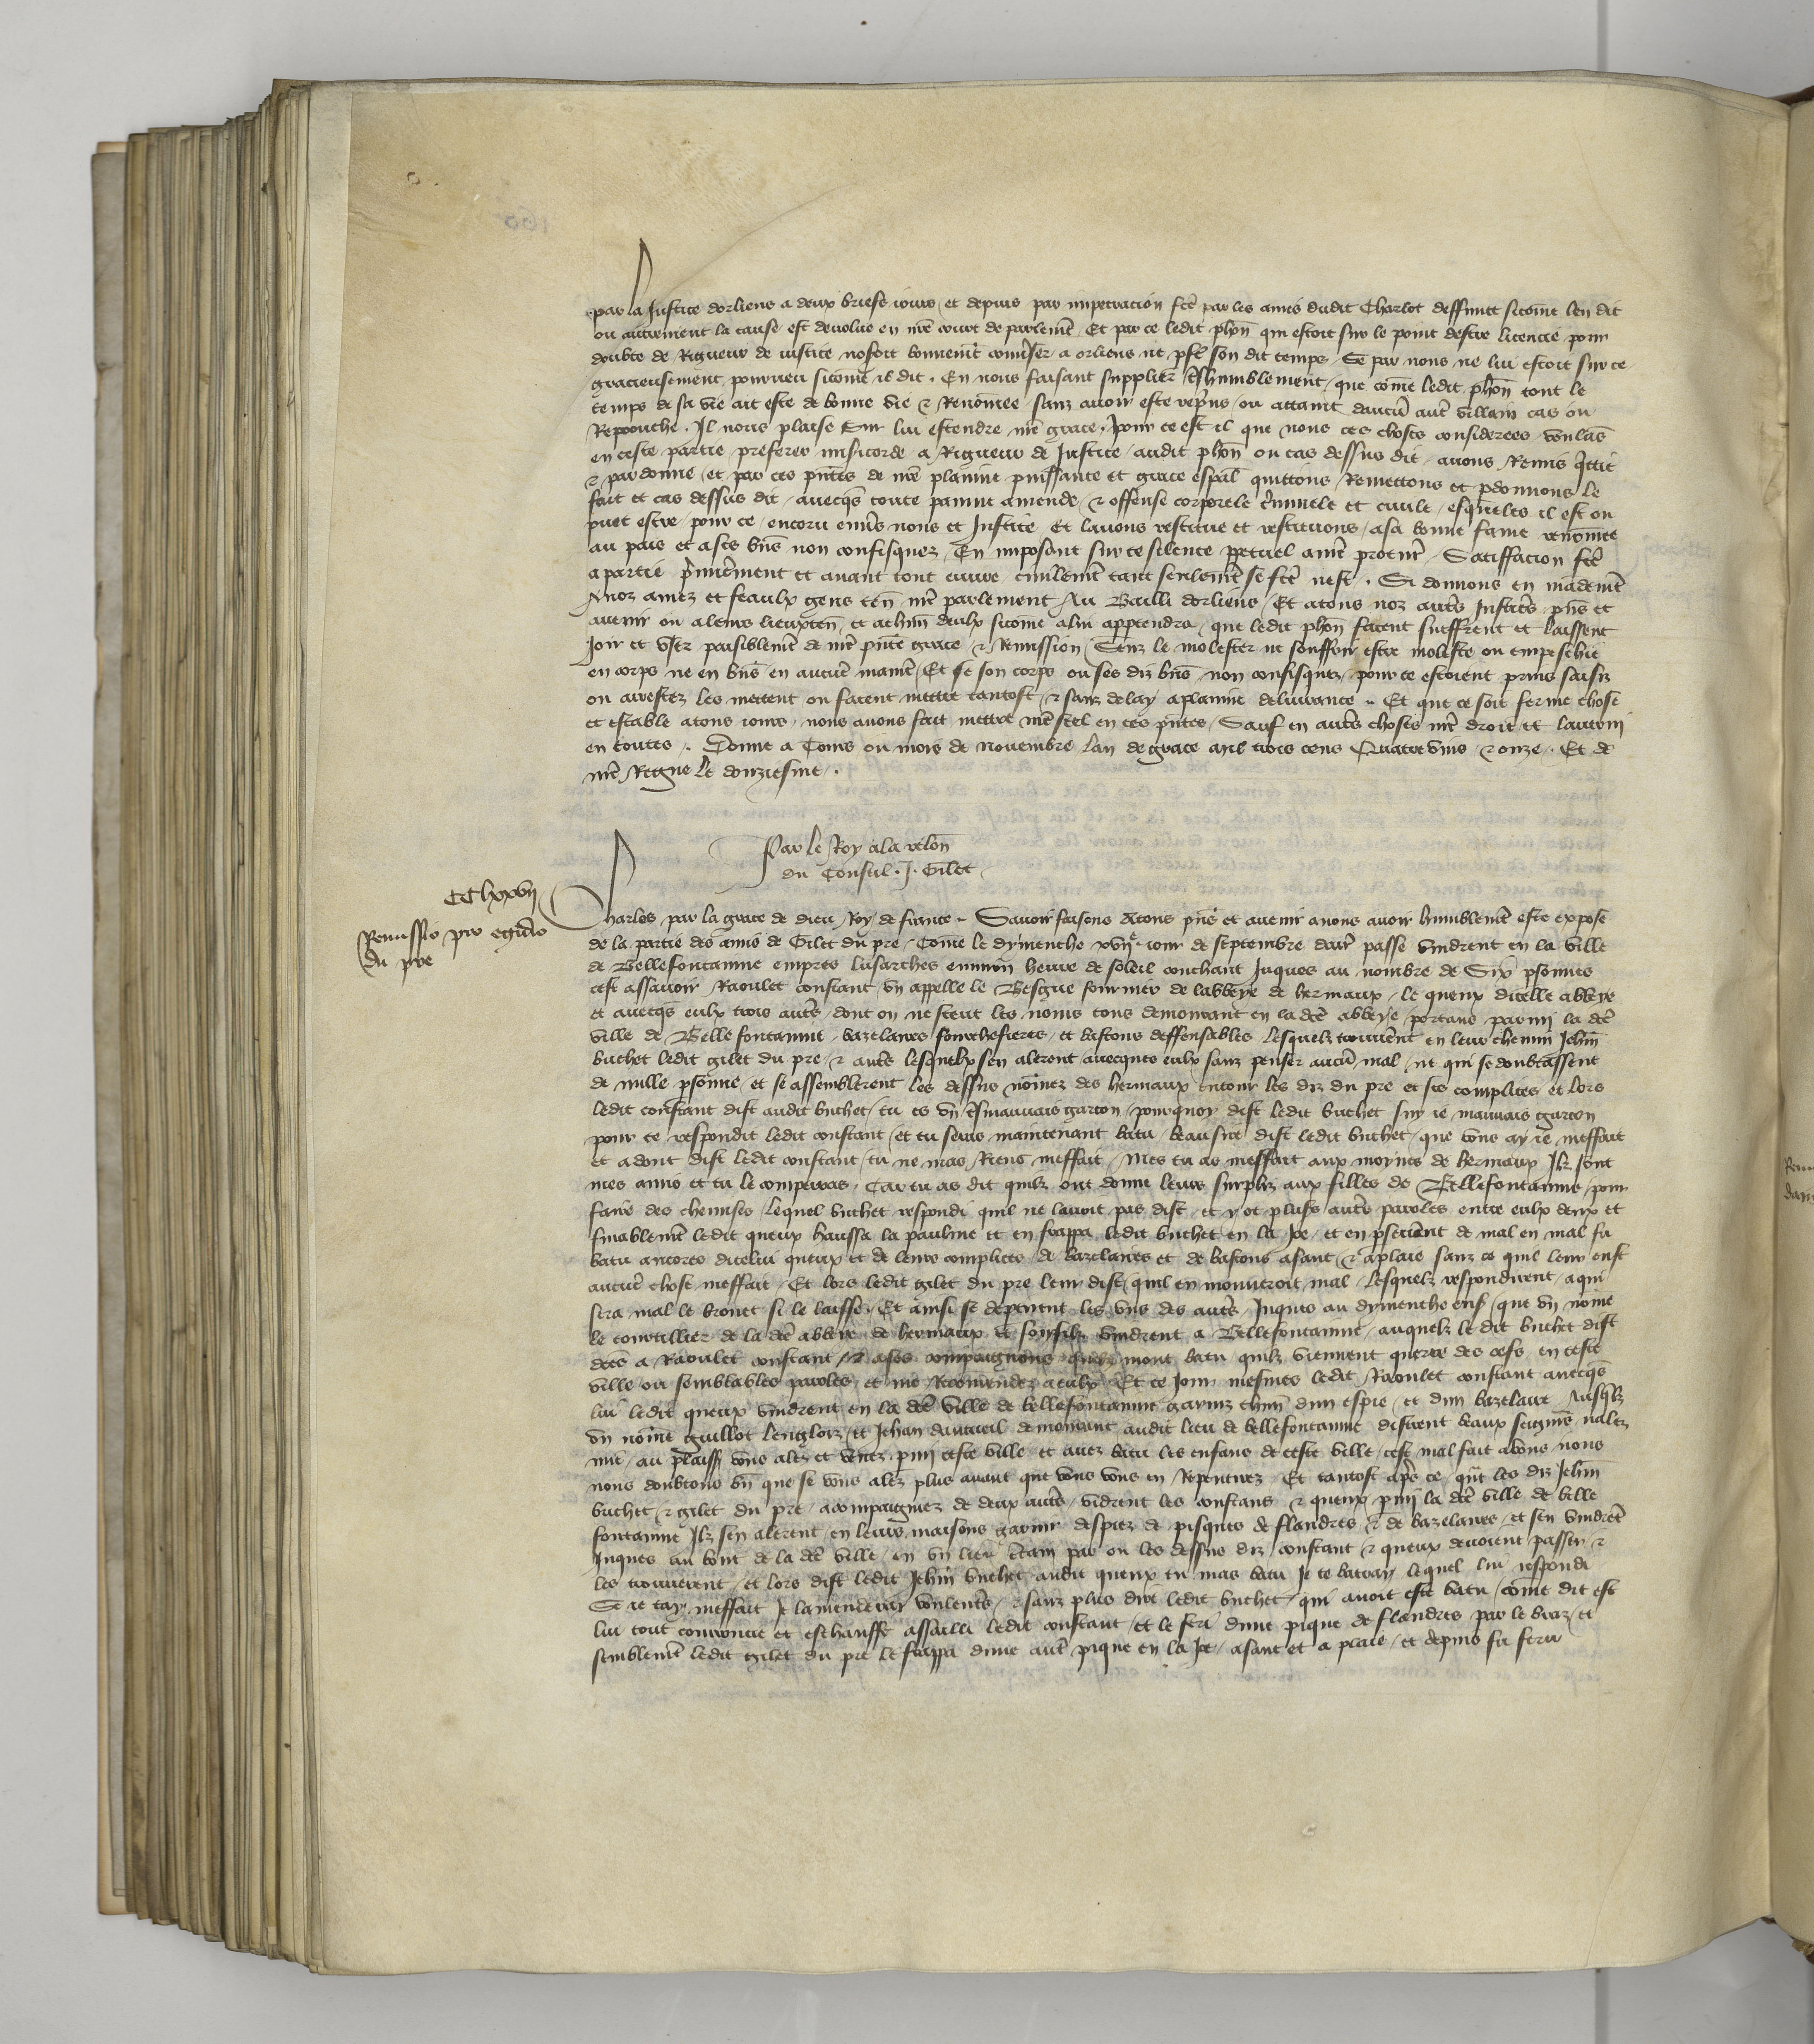 par la Justice dorliens a deux briefs iours / et depuis par impetracion fcē par les amis dudit Charlot deffunct sicōme len dit
ou autrement la cause est devolue en nr̄e court de parlemēt / Et par ce ledit ph̄on qui estoit sur le point destre licencie pour
doubte de Rigueur de iustice noseroit bonnemēt converser a orliens ne son dit temps / Se par nous ne lui estoit sur ce
gracieusement pourveu sicōme il dit . En nous faisant supplier treshumblement / que cōme ledit ph̄on tout le
temps de sa vie ait este de bonne vie & Renōmee sanz avoir este repris / ou attaint daucū autr̄ villain cas ou
Reprouche . Il nous plaise Sur lui estendre nr̄e grace / Pour ce est il que nous ces choses considerees voulās
en ceste partie preferer misicorde a Rigueur de Justice / audit ph̄on ou cas dessus dit / avons Remis quittie
& pardonne / et par ces pn̄tes de nr̄e plainne puissance et grace esp̄al quittons / Remettons et pdonnons le
fait et cas dessus dit / avecqs toute painne amende / & offense corporele criminele et civile / esqueles il est ou
puet estre / pour ce / encoru envs nous et Justice / Et lavons restitue et restituons / a sa bonne fame renōmee
au pais et a ses bn̄s non confisquez / En imposant sur ce silence ppetuel a nr̄e procur̄ / Satiffacion fcē
a partie premierement et avant tout euvre civilemēt tant seulemēt se fcē nest . Si donnons en mādemēt
A noz amez et feaulx gens ten̄ nr̄e parlement Au Bailli dorliens / Et a tous noz autrs Justicrs pn̄s et
avenir ou a leurs lieuxten̄ / et a chūn deulx sicōme a lui apptendra / que ledit ph̄on facent sueffrent et laissent
Joir et user paisiblemēt de nr̄e pn̄te grace & Remission / Senz le molester ne souffrir estre moleste ou empeschie
en corps ne en bn̄s en aucune manie͂ / Et se son corps ou ses diz bn̄s non confisquez / pour ce estoient prins saisiz
ou arrestez les mettent ou facent mettre tantost & sanz delay a plainne delivrance . Et que ce soit ferme chose
et estable a tous iours / nous avons fait mettre nr̄e scel en ces pn̄tes / Sauf en autrs choses nr̄e droit et lautrui
en toutes . Donne a Tours ou mois de novembre Lan de grace mil trois cens Quatre vins & onze . Et de
nr̄e Regne le douziesme .
Par le Roy a la relōn
du Conseil . J . Gilet
CClxxvij
Remissio pro egidio
du pre
Charles par la grace de dieu Roy de france . Savoir faisons A tous pn̄s et avenir a nous avoir humblemēt este expose
de la partie des amis de Gilet du pre / Cōme le dymenche xvije iour de septembre derr̄ passe vindrent en la ville
de Bellefontainne empres lusarches environ heure de soleil couchant Jusques au nombre de Six psonnes
cest assavoir Raoulet constant vn appelle le Besgue fournier de labbeye de hermaux / le queux dicelle abbeye
et avecqs eulx trois autrs / dont on ne scet les noms tous demourant en la dcē abbeye / portans parmi la dcē
ville de Bellefontainne / bazelaires fourchefieres / et bastons deffensables Lesquelz trouverent en leur chemin Jehn̄
buchet ledit gilet du pre / & autrs lesquelx sen alerent avecques eulx sanz penser aucū mal / ne qui se doubtassent
de nulle psonne / et se assemblerent les dessus nōmez des hermaux entour les diz du pre et ses complices et lors
ledit constant dist audit buchet / tu es vn tresmauvais garcon / pourquoy dist ledit buchet suy ie mauvais garcon
pour ce respondit ledit constant / et tu seras maintenant batu / beau sire dist ledit buchet / que vous ay ie meffait
et adont dist ledit constant / tu ne mas Riens meffait / Mes tu as meffait aux moynes de hermaux Ilz sont
mes amis et tu le comperras . Car tu as dit quilz ont donne leurs surpliz aux filles de Bellefontainne / pour
faire des chemises / lequel buchet respondi quil ne lavoit pas dist / et y ot plusrs autrs paroles entre eulx deux et
finablemēt ledit queux haussa la paulme et en frappa ledit buchet en la Joe / et en pseverāt de mal en mal fu
batu ancores dicelui queux et de leurs complices / de bazelaires et de bastons a sanc & a plaie sanz ce quil leur eust
aucune chose meffait / Et lors ledit gilet du pre leur dist / quil en mouveroit mal / Lesquelz respondirent / a qui
sera mal le brouet si le laisse / Et ainsi se departirent les vns des autrs / Jusques au dymenche ens̄ / que vn nōme
le courtillier de la dcē abbeye de hermaux et son filz vindrent a Bellefontainne / auquelz le dit buchet dist
dictes a Raoulet constant & a ses compaignons quilz mont batu quilz viennent querre des oefs en ceste
ville ou semblables paroles et me Recōmendez a eulx Et ce Jour mesmes ledit Raoulet constant avecqs
lui ledit queux vindrent en la dcē ville de bellefontainne garniz chūn dun espie / et dun bazelaire Ausqlz
vn nōme guillot lenglois / et Jehan dautueil demourant audit lieu de bellefontainne distrent beaux seigneurs nalez
mie / au plaiss vous alez et venez pmi ceste ville / et avez batu les enfans de ceste ville / cest mal fait a vous nous
nous doubtons bn̄ que se vous alez plus avant que vous vous en Repentirez / Et tantost aprs ce / que les diz Jehn̄
buchet & gilet du pre / acompaignez de deux autrs / vidrent les constans & queux pmi la dcē ville de belle
fontainne Ilz sen alerent en leurs maisons garnir despiez de pisques de flandres & de bazelaires / et sen vindrēt
Jusques au bout de la dcē ville / en vn lieu certain par ou les dessus diz constant & queux devoient passer &
les trouverent / et lors dist ledit Jehn̄ buchet audit queux tu mas batu Je te batray lequel lui respondi
Se ie tay meffait Je lamenderay voulentrs / & sanz plus dire ledit buchet / qui avoit este batu / cōme dit est
lui tout courroucie et eschauffe assailli ledit constant / et le feri dune pique de flandres par le braz / et
semblemēt ledit gilet du pre le frappa dune autr̄ pique en la Joe / a sanc et a plaie / et depuis fu feru